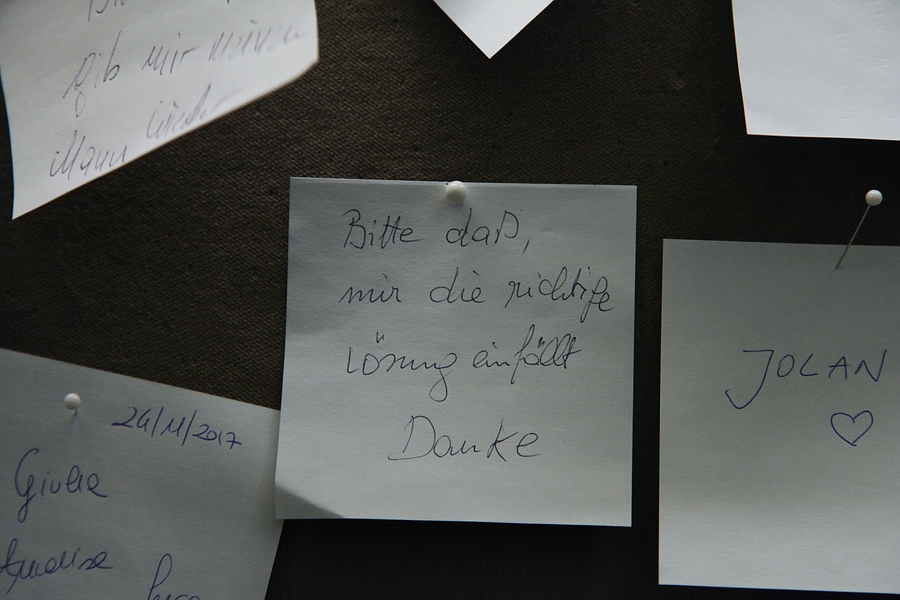 gib mir meinen
Mann wieder
Bitte daß,
mir die richtige
Lösung einfällt
Danke
JOLAN
24/11/2017
Giulia